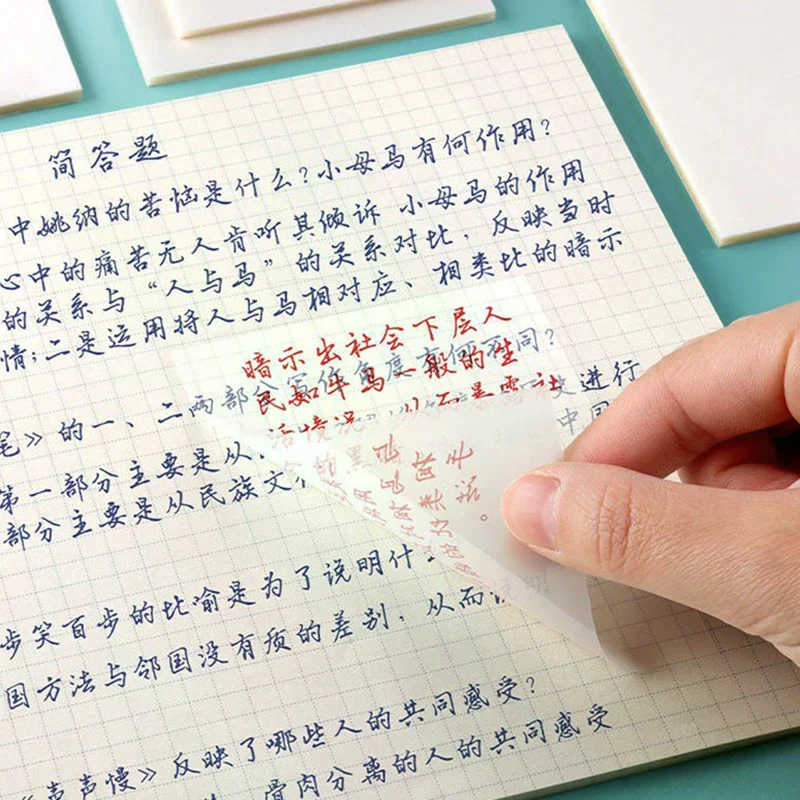 简答题
中姚纳的苦恼是什么?小母马有何作用?
心中的痛苦无人肯听其倾诉 小母马的作用
的关系与“人与马”的关系对比,反映当时
情;二是运用将人与马相对应、相类比的暗示
暗示出社会下层人
民如牛马一般的生
活情况,从而暴露社
笔》的一、二两部分写作角度有何不同?
第一部分主要是从
史进行
部分主要是从民族文
中国
步笑百步的比喻是为了说明什
国方法与邻国没有质的差别,从而说明
《声声慢》反映了哪些人的共同感受?
骨肉分离的人的共同感受